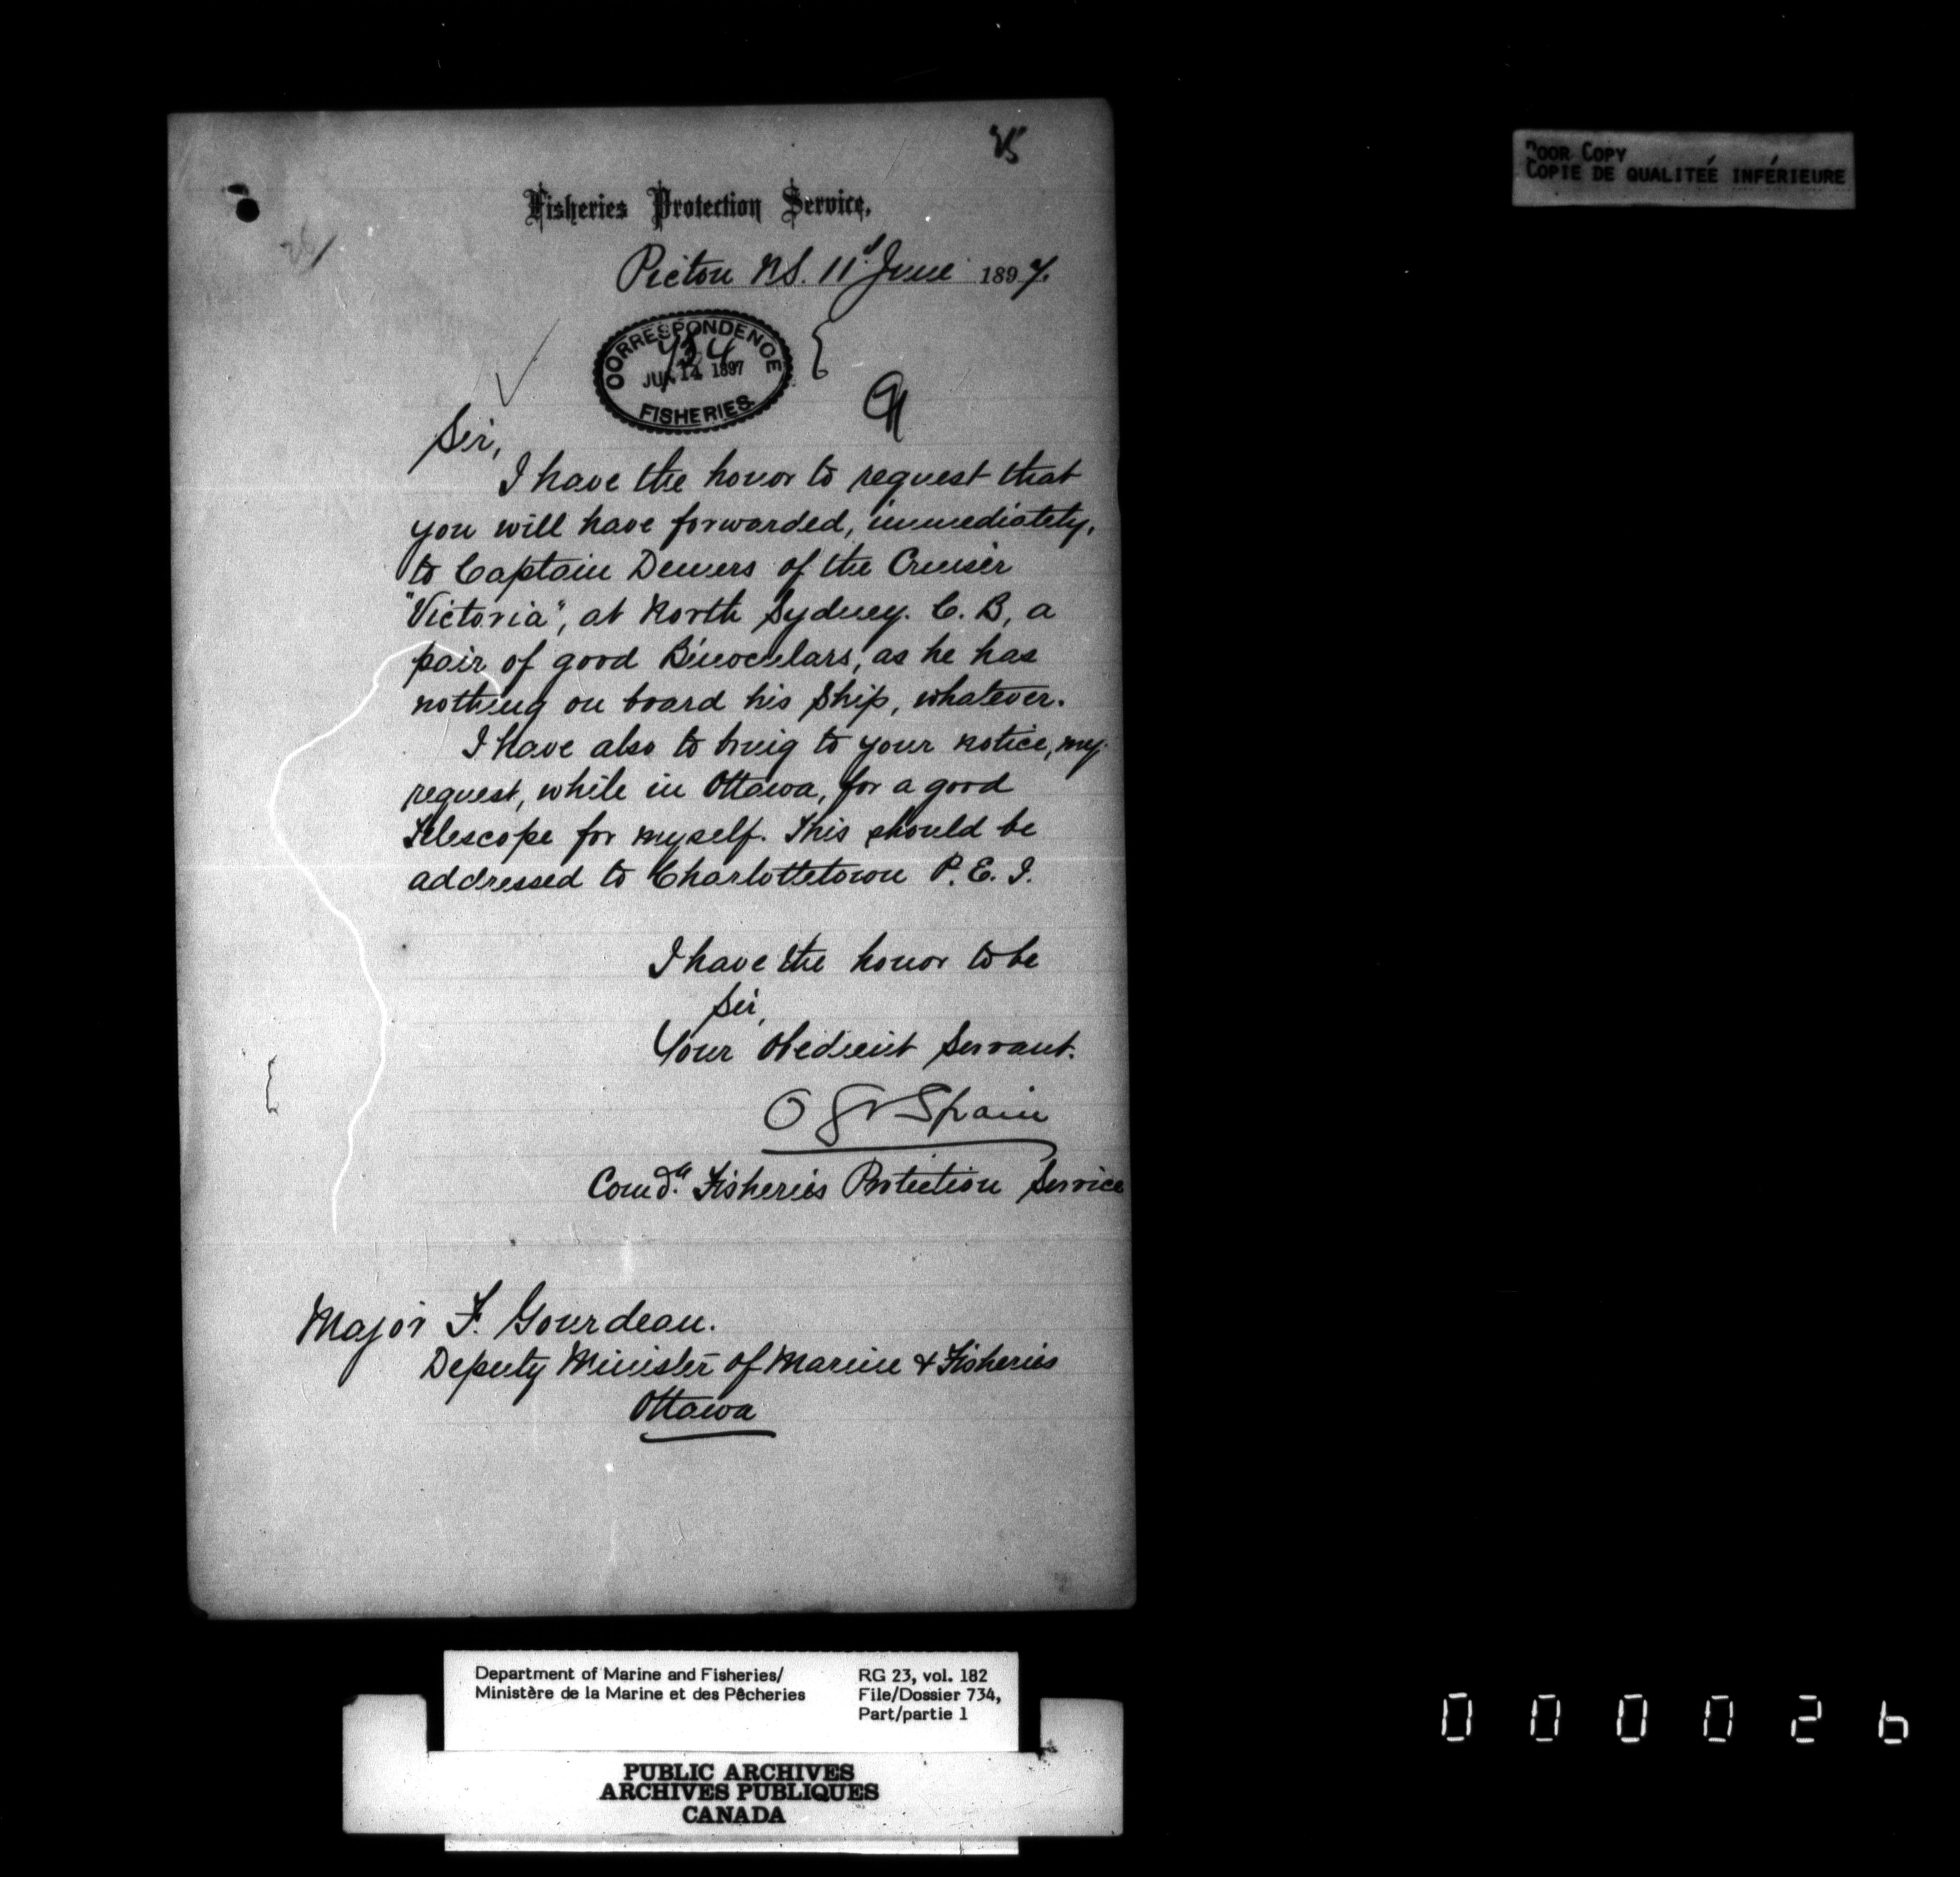 25
Fisheries Protection Service,
Pictou N.S. 11th June 1897.
CORRESPONDENCE
734
JUN 14 1897
FISHERIES
Sir,
I have the honor to request that
you will have forwarded, immediately,
to Captain Demers of the Cruiser
"Victoria", at North Sydney. C. B, a
pair of good Binoculars, as he has
nothing on board his Ship, whatever.
I have also to bring to your notice, my
request, while in Ottawa, for a good
Telescope for myself. This should be
addressed to Charlottetown P. E. I.
I have the honor to be
Sir,
Your Obedient Servant.
O G V Spain
Comdg. Fisheries Protection Service
Major F. Gourdeau.
Deputy Minister of Marine & Fisheries
Ottawa
POOR COPY
COPIE DE QUALITEÉ INFÉRIEURE
Department of Marine and Fisheries/
Ministère de la Marine et des Pêcheries
RG 23, vol. 182
File/Dossier 734,
Part/partie 1
PUBLIC ARCHIVES
ARCHIVES PUBLIQUES
CANADA
000026